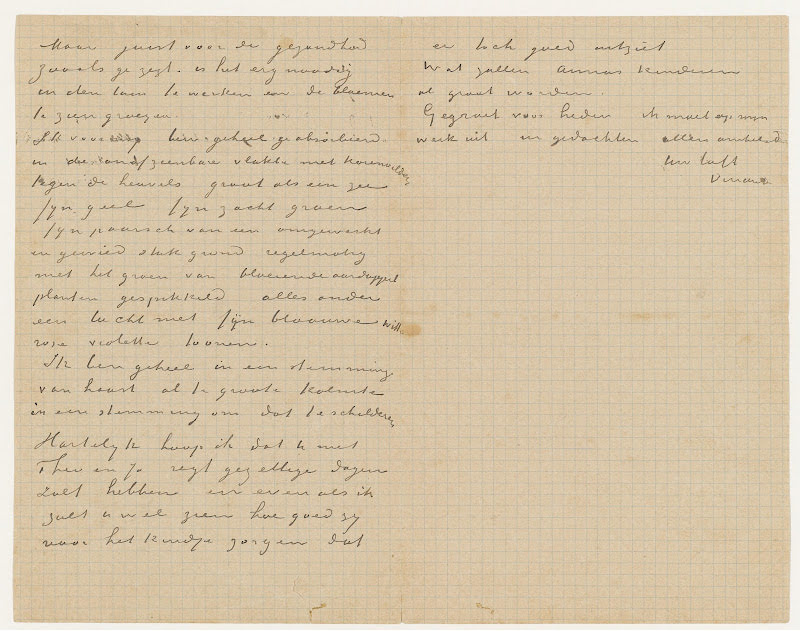 Maar juist voor de gezondheid
zooals ge zegt. is het erg noodig
in den tuin te werken en de bloemen
te zien groeien.
Ik voor ben geheel geabsorbeerd
in de vlakte met korenvelden
tegen de heuvels groot als een zee
fijn geel fijn zacht groen
fijn paarsch van een omgewerkt
en gewied stuk grond regelmatig
met het groen van bloeiende aardappel
planten gespikkeld alles onder
een lucht met fijn blaauwe witte
rose violette toonen.
Ik ben geheel in een stemming
van haast al te groote kalmte
in een stemming om dat te schilderen
Hartelyk hoop ik dat U met
Theo en Jo regt gezellige dagen
zult hebben en even als ik
zult U wel zien hoe goed zy
voor het kindje zorgen dat
er toch goed uitziet
Wat zullen Annas kinderen
al groot worden.
Gegroet voor heden ik moet op mijn
werk uit in gedachten omhelsd
Uw
Vincent